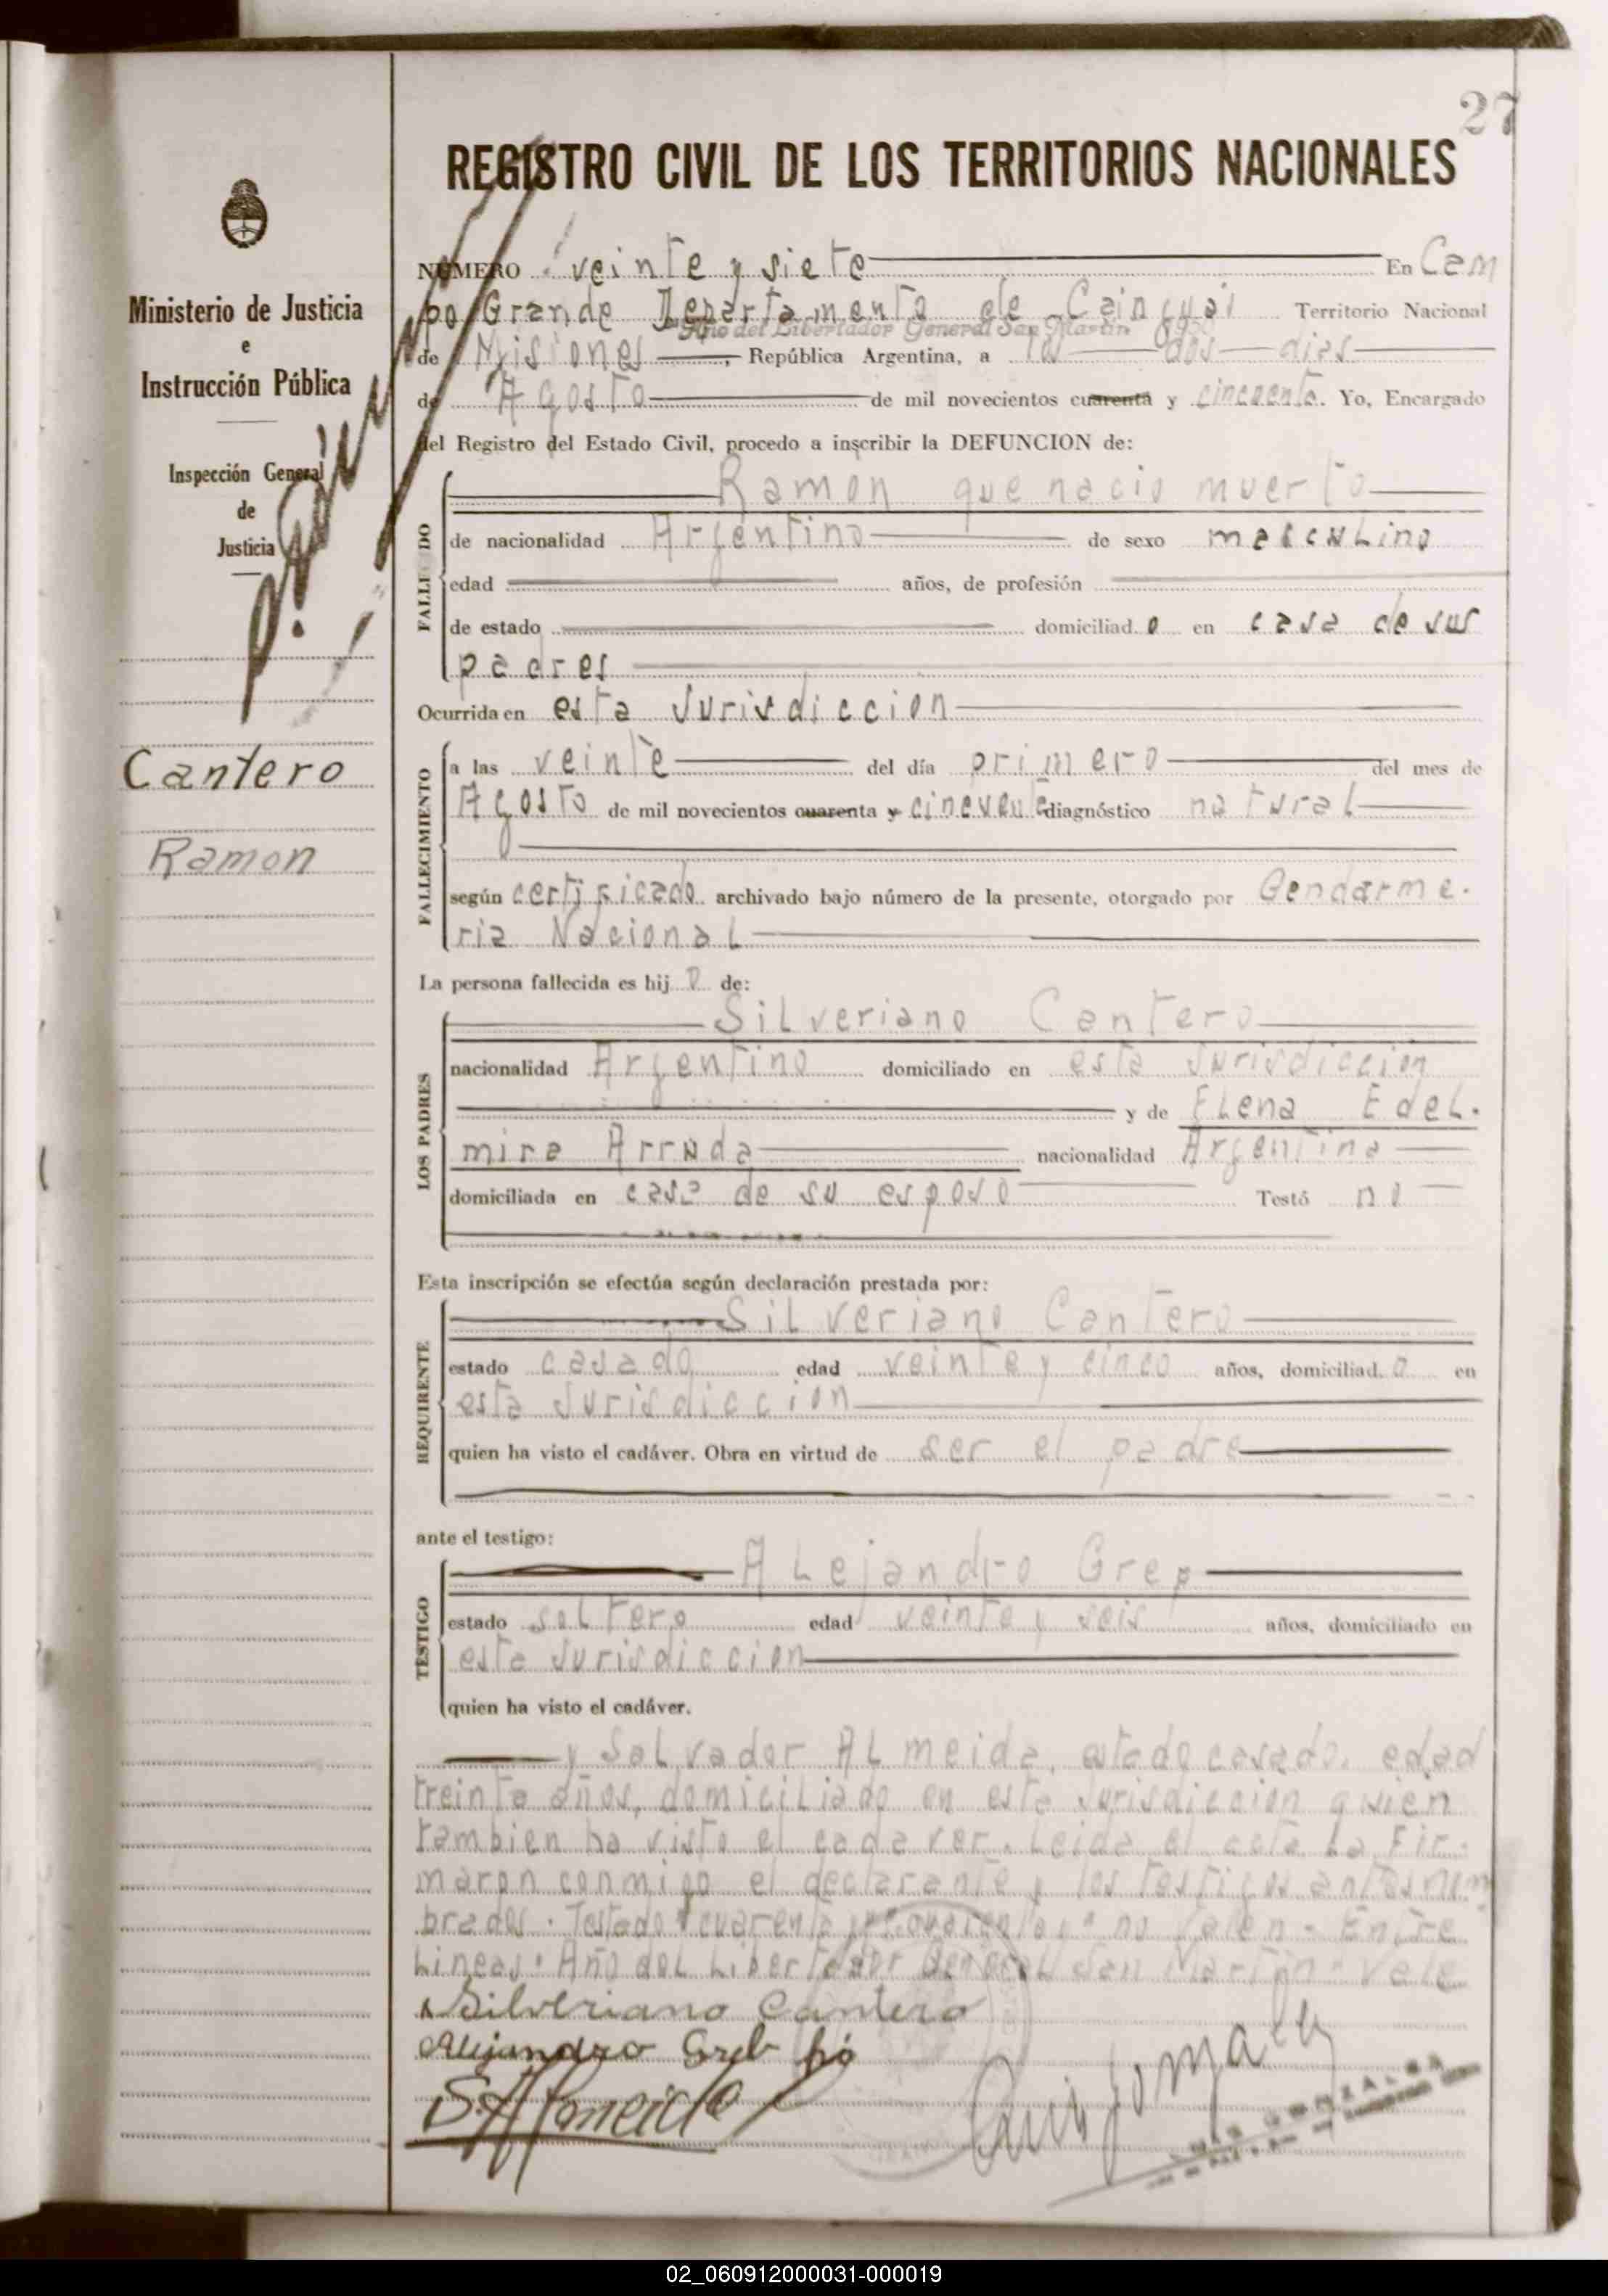 27
REGISTRO CIVIL DE LOS TERRITORIOS NACIONALES
Ministerio de Justicia
e
Instrucción Pública
Inspección General
de
Justicia
Cantero
Ramon
NÚMERO veinte y siete En Cam
po Grande Departamento de Cainguás Territorio Nacional
Año del Libertador General San Martin 1950
de Misiones, República Argentina, a los dos dias
de Agosto de mil novecientos cuarenta y cincuenta. Yo, Encargado
del Registro del Estado Civil, procedo a inscribir la DEFUNCION de:
FALLECIDO
Ramon que nacio muerto
de nacionalidad Argentino de sexo masculino
edad años, de profesión
de estado domiciliad o en casa de sus
padres
Ocurrida en esta Jurisdiccion
FALLECIMIENTO
a las veinte del día primero del mes de
Agosto de mil novecientos cuarenta y cincuenta diagnóstico natural
según certificado archivado bajo número de la presente, otorgado por Gendarme-
ria Nacional
La persona fallecida es hij o de:
LOS PADRES
Silveriano Cantero
nacionalidad Argentino domiciliado en esta Jurisdiccion
y de Elena Edel-
mira Arruda nacionalidad Argentina
domiciliada en casa de su esposo Testó no
Esta inscripción se efectúa según declaración prestada por:
REQUIRENTE
Silveriano Cantero
estado casado edad veinte y cinco años, domiciliad o en
esta Jurisdiccion
quien ha visto el cadáver. Obra en virtud de ser el padre
ante el testigo:
TESTIGO
Alejandro Grep
estado soltero edad veinte y seis años, domiciliado en
esta Jurisdiccion
quien ha visto el cadáver.
y Salvador Almeida, estado casado, edad
treinta años, domiciliado en esta Jurisdiccion quien
tambien ha visto el cadaver. Leida el acta la Fir-
maron conmigo el declarante y los testigos antes nom
brados. Testado "cuarenta y" "cuarenta y" no valen - Entre
Lineas. Año del Libertador General San Martin - Vale
Silveriano Cantero
Alejandro Greb
S. Almeida
LUIS GONZALEZ
02_060912000031-000019